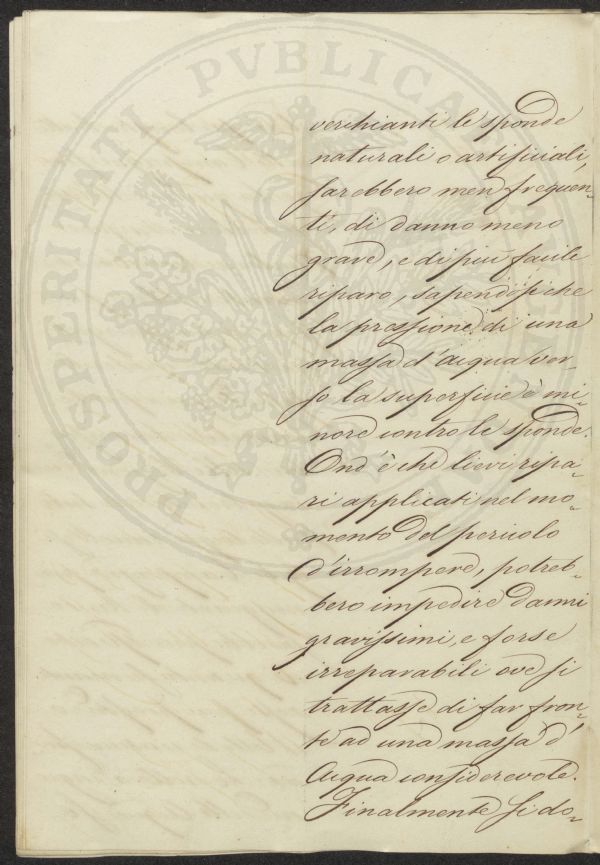 PROSPERITATI PVBLICAE
verchianti le sponde
naturali o artificiali,
sarebbero men frequen=
ti, di danno meno
grave, e di più facile
riparo, sapendosi che
la pressione di una
massa d'acqua ver=
so la superficie è mi=
nore contro le sponde.
Ond'è che lievi ripa=
ri applicati nel mo=
mento del pericolo
d'irrompere, potreb=
bero impedire danni
gravissimi, e forse
irreparabili ove si
trattasse di far fron=
te ad una massa d'
Acqua considerevole.
Finalmente si do=